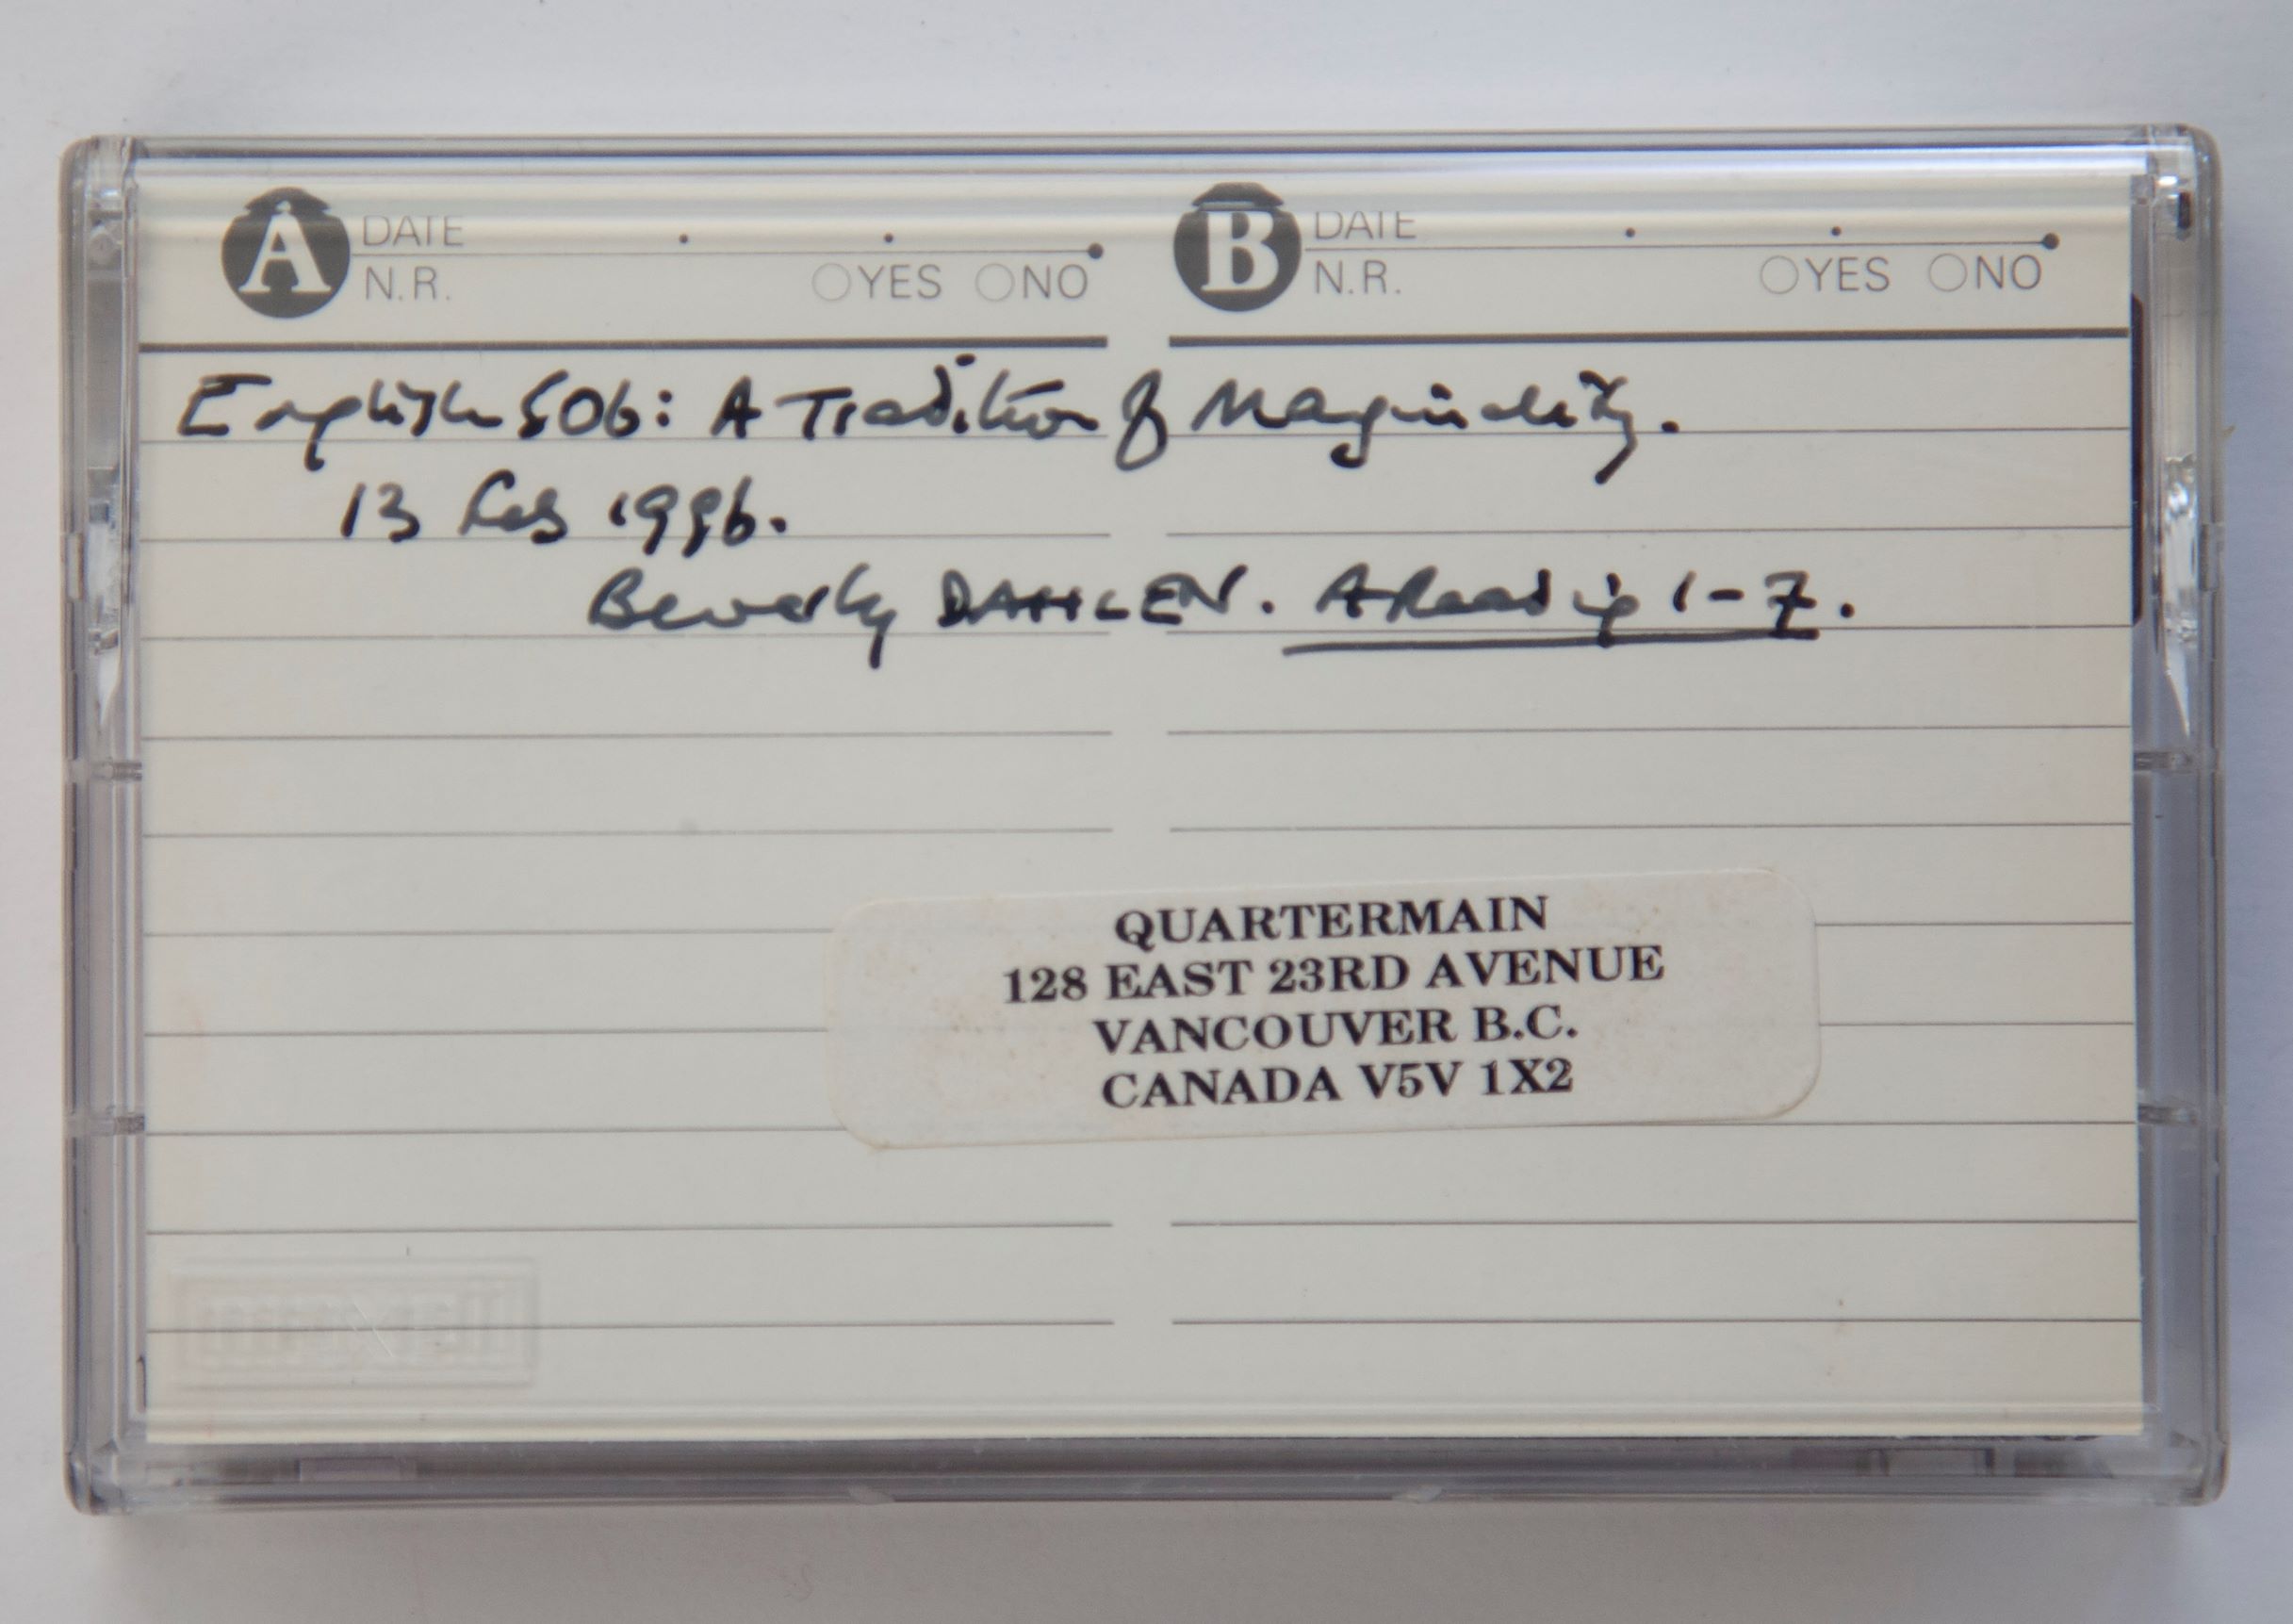 A DATE B DATE
N.R. YES NO N.R. YES NO
English 506: A Tradition of Marginality.
13 Feb 1996.
Beverly DAHLEN. A Reading 1-7.
QUARTERMAIN
128 EAST 23RD AVENUE
VANCOUVER B.C.
CANADA V5V 1X2
maxell